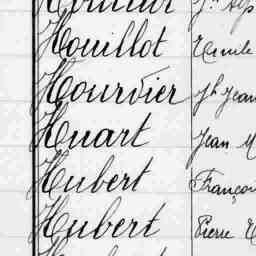 Houillot Emile
Hourdier Jh Jean
Huart Jean M
Hubert Franço
Hubert Pierre